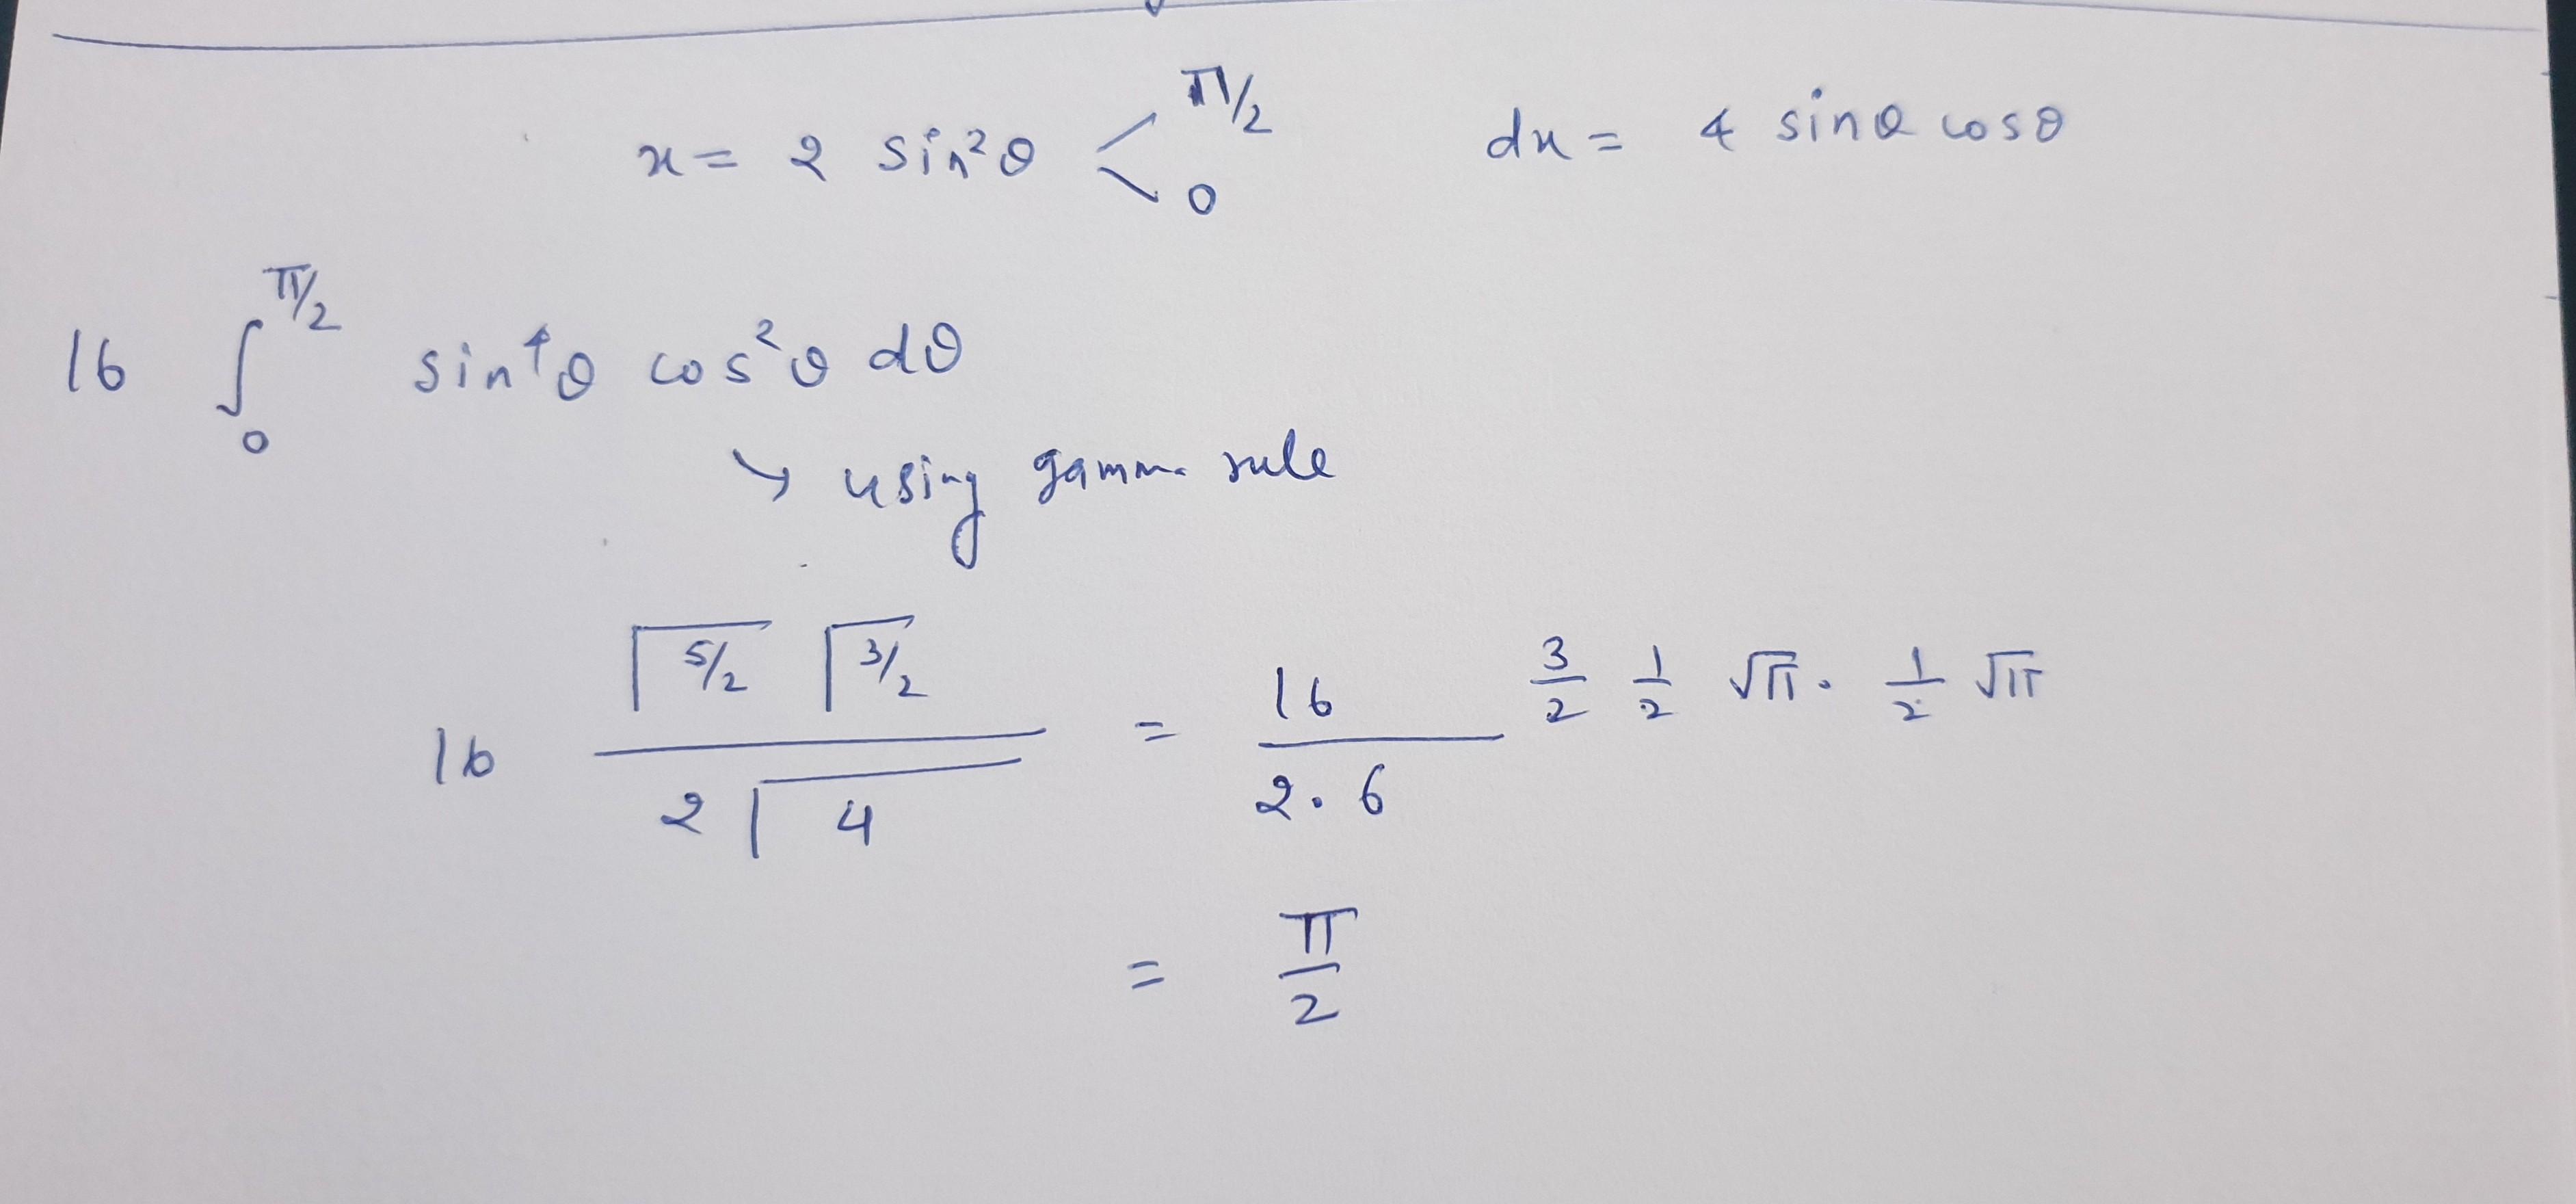 x = 2 sin²θ < π/2 0 dx = 4 sinθ cosθ
16 ∫₀^{π/2} sin⁴θ cos²θ dθ
↘ using gamma rule
16 (Γ5/2 Γ3/2) / (2 Γ4) = 16/(2·6) 3/2 1/2 √π · 1/2 √π
= π/2